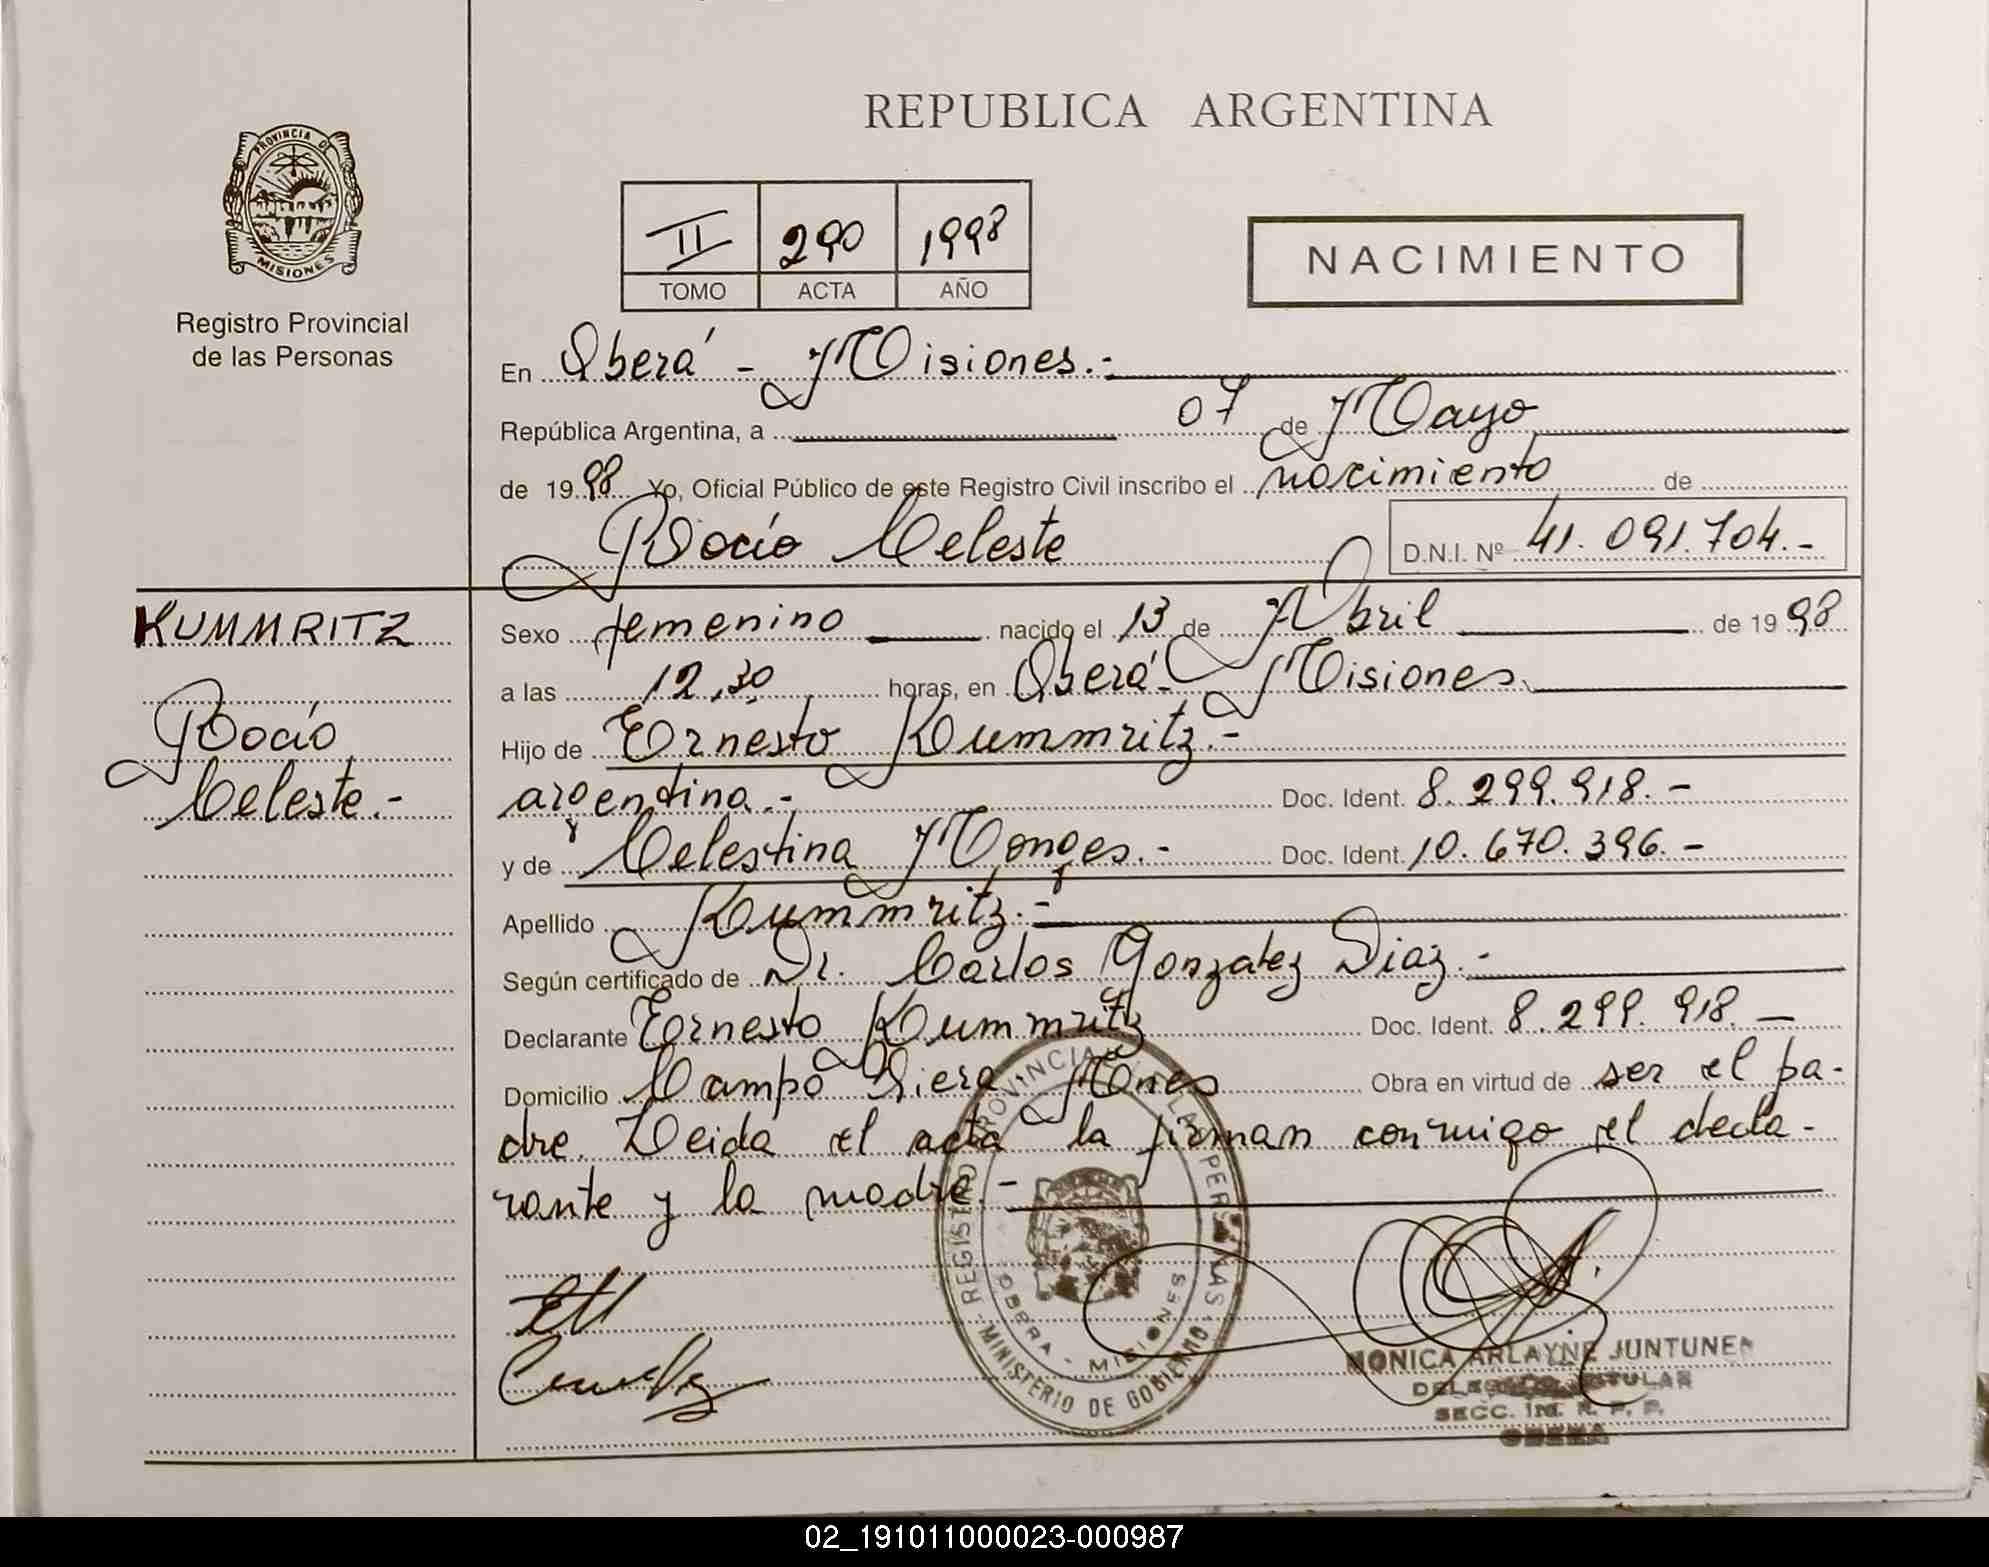 REPUBLICA ARGENTINA
PROVINCIA DE
MISIONES
Registro Provincial
de las Personas
II 290 1998
TOMO ACTA AÑO
NACIMIENTO
En Oberá - Misiones.-
República Argentina, a 07 de Mayo
de 1998 Yo, Oficial Público de este Registro Civil inscribo el nacimiento de
Rocío Celeste D.N.I. Nº 41.091.704.-
KUMMRITZ
Rocío
Celeste.-
Sexo femenino nacido el 13 de Abril de 1998
a las 12,30 horas, en Oberá - Misiones.
Hijo de Ernesto Kummritz.-
argentina.- Doc. Ident. 8.299.918.-
y de Celestina Monges.- Doc. Ident. 10.670.396.-
Apellido Kummritz.-
Según certificado de Dr. Carlos Gonzalez Diaz.-
Declarante Ernesto Kummritz Doc. Ident. 8.299.918.-
Domicilio Campo Viera Mnes Obra en virtud de ser el pa-
dre. Leida el acta la firman conmigo el decla-
rante y la madre.-
REGISTRO PROVINCIAL DE LAS PERSONAS
OBERA - MISIONES
MINISTERIO DE GOBIERNO
MONICA ARLAYNE JUNTUNEN
DELEGADO TITULAR
SECC. R. P. P.
OBERA
02_191011000023-000987